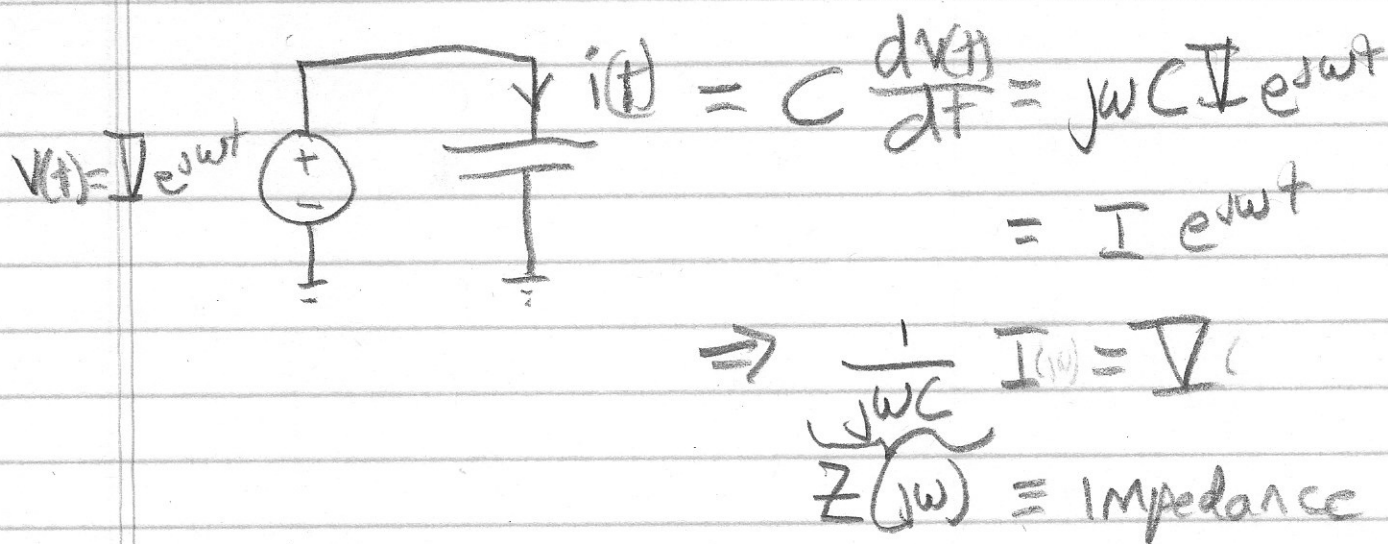 V(t) = V e^{jωt} + - i(t) = C dv(t)/dt = jωC V e^{jωt}
= I e^{jωt}
⇒ 1/jωC I(jω) = V (
Z(jω) ≡ Impedance